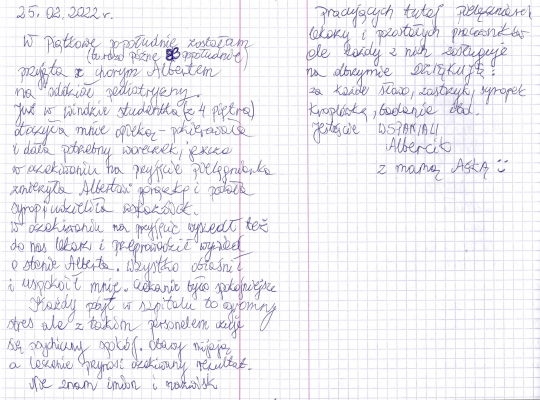 25.02.2022 r.
W piątkowe popołudnie zostałam
(bardzo późne popołudnie)
przyjęta z chorym Albertem
na oddział pediatryczny.
Już w windzie studentka (z 4 piętra)
otoczyła mnie opieką, - pokierowała
i dała potrzebny woreczek, jeszcze
w oczekiwaniu na przyjęcie pielęgniarka
zmierzyła Albertowi gorączkę i podała
syrop i udzieliła wskazówek.
W oczekiwaniu na przyjęcie wyszedł też
do nas lekarz i przeprowadził wywiad
o stanie Alberta. Wszystko objaśnił
i uspokoił mnie. Czekanie było spokojniejsze
Każdy pobyt w szpitalu to ogromny
stres ale z takim personelem czuje
się psychiczny spokój. Obawy mijają
a leczenie przynosi oczekiwany rezultat.
Nie znam imion i nazwisk
pracujących tutaj pielęgniarek
lekarzy i pozostałych pracowników
ale każdy z nich zasługuje
na olbrzymie DZIĘKUJĘ:
za każde słowo, zastrzyk, syropek
kroplówkę, badanie itd.
Jesteście WSPANIALI
Albercik
z mamą ASKĄ :)